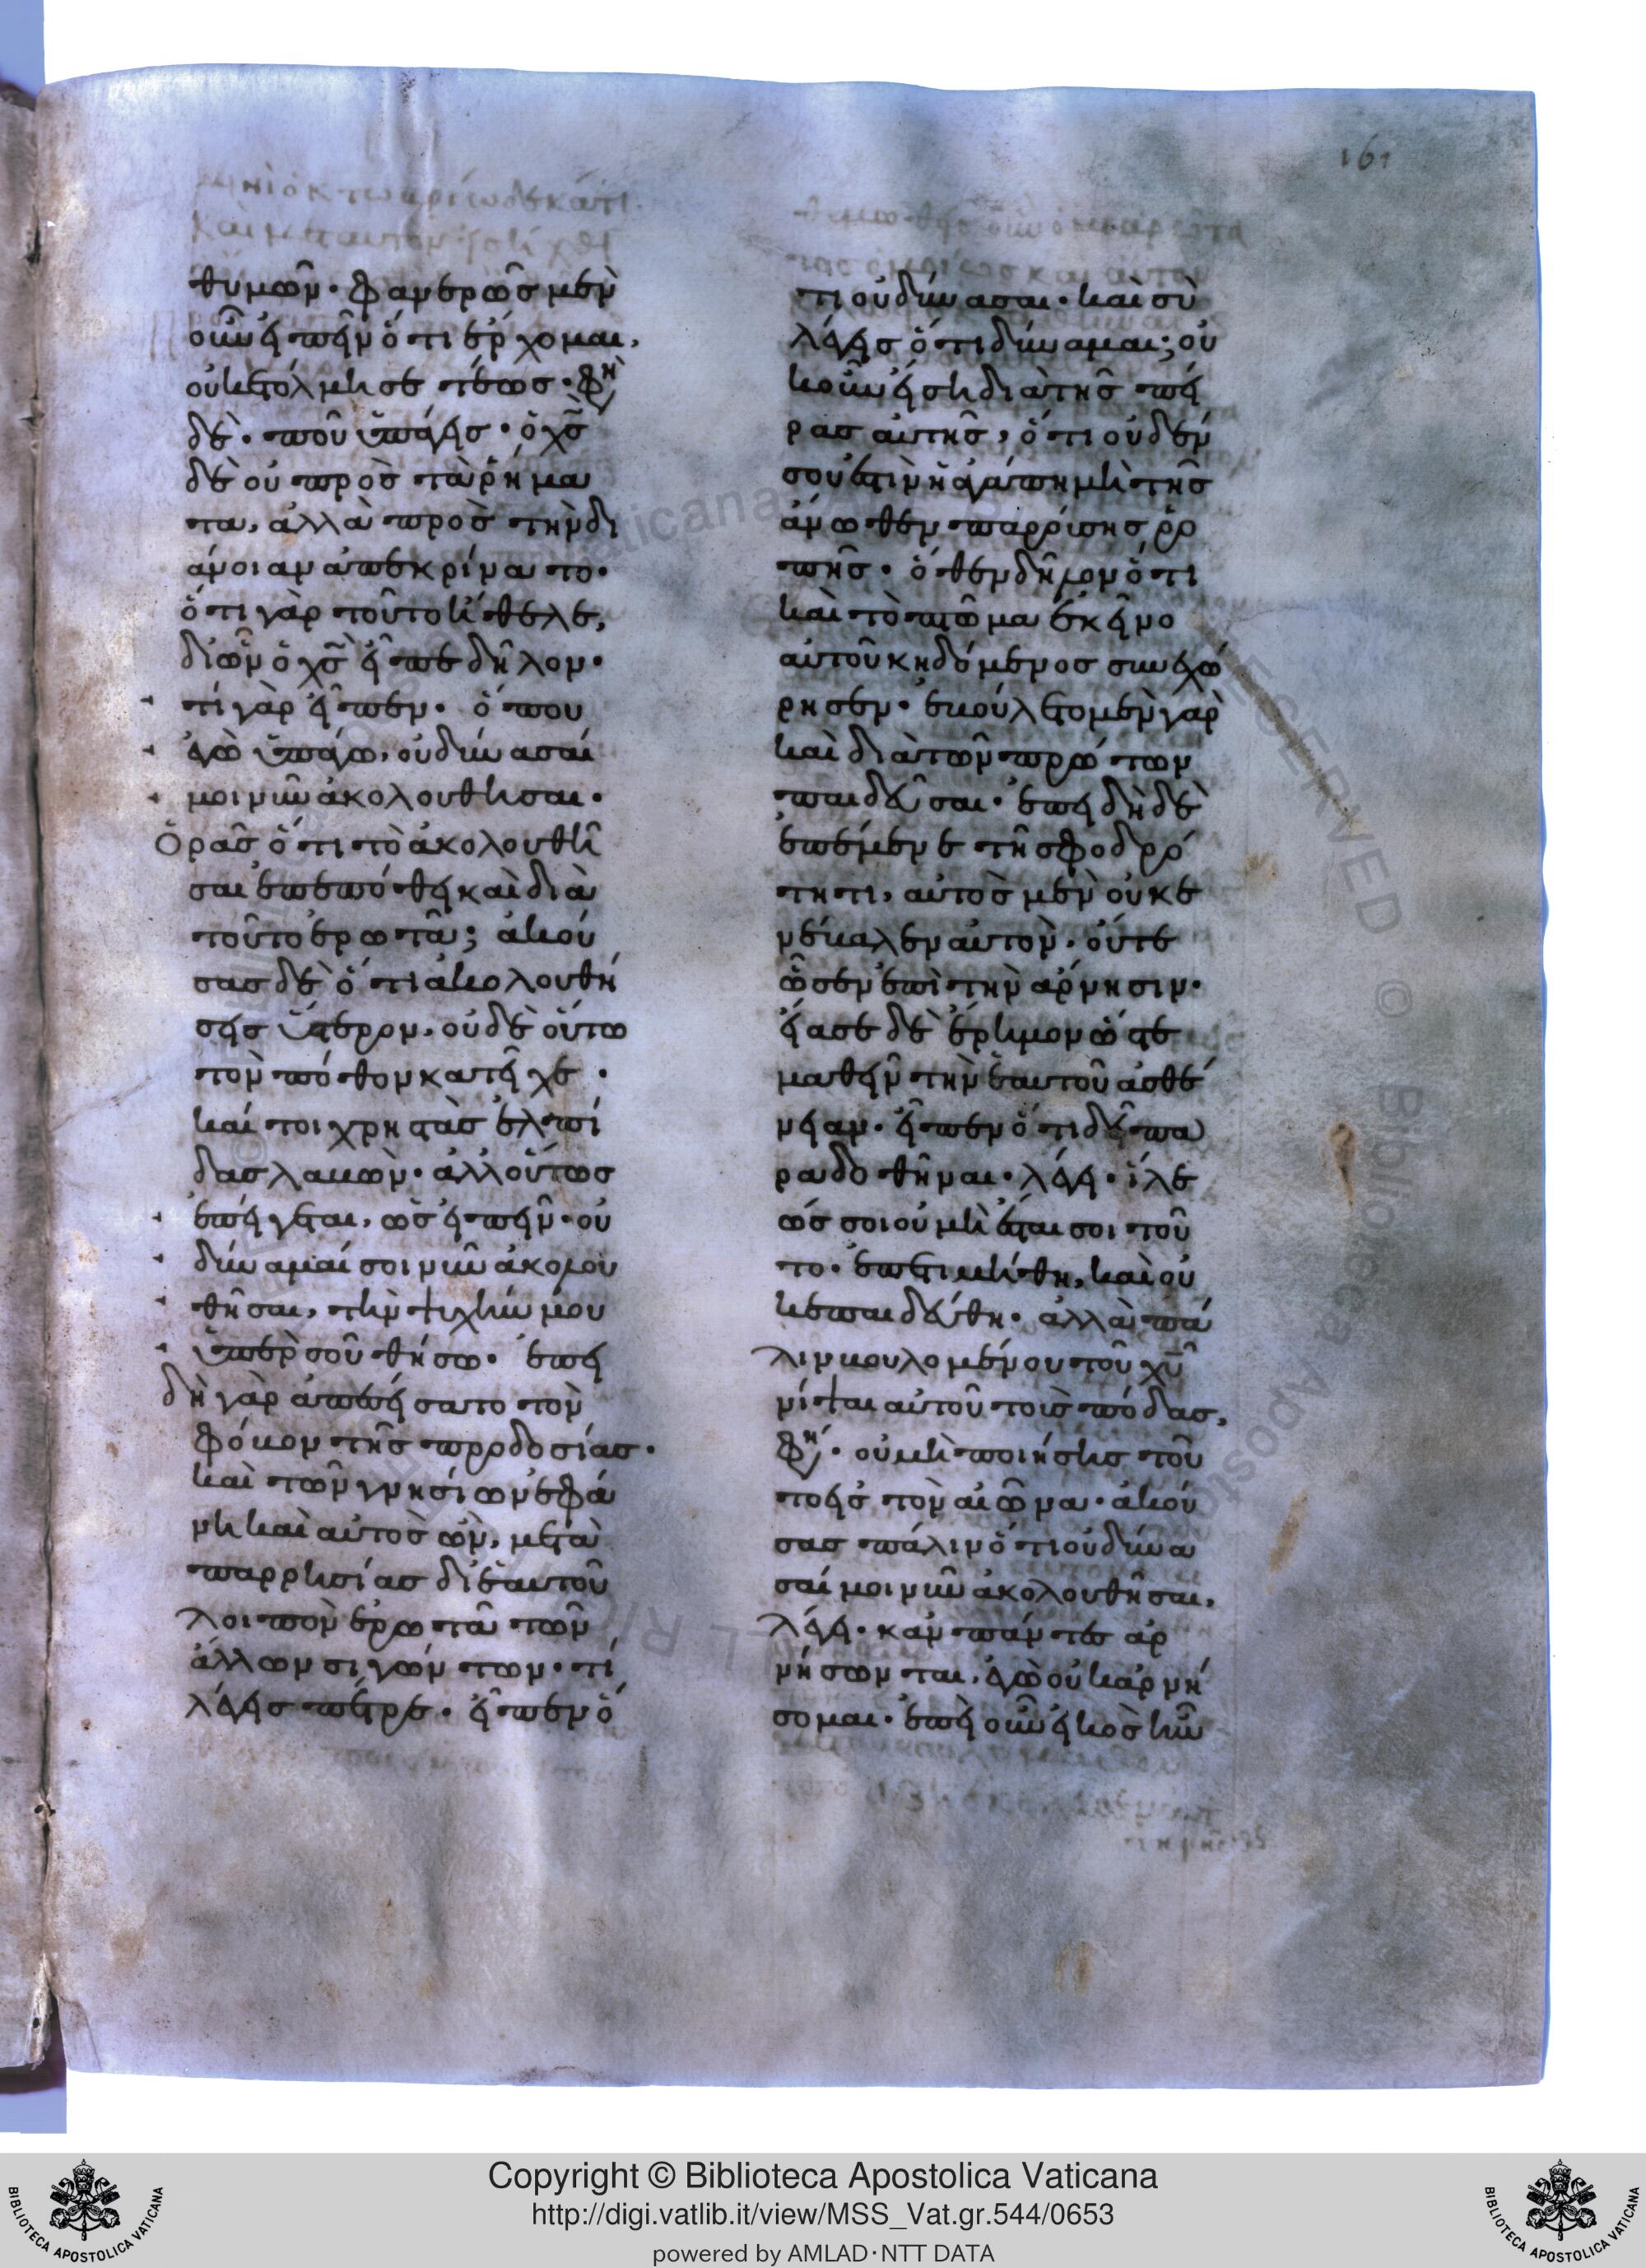 161
θυμῶν· φανερῶς μὲν
οὖν εἰπεῖν ὅτι ἔρχομαι,
οὐκ ἐτόλμησε τέως· φη
δέ· ποῦ ὑπάγεις· ὁ χς
δὲ οὐ πρὸς τὰ ῥήμα
τα, ἀλλὰ πρὸς τὴν δι
άνοιαν ἀπεκρίνατο·
ὅτι γὰρ τοῦτο ἤθελε,
δι ὧν ὁ χς εἶπε δῆλον·
τί γὰρ εἶπεν· ὅπου
ἐγὼ ὑπάγω, οὐ δύνασαί
μοι νῦν ἀκολουθῆσαι·
Ὁρᾶς ὅτι τὸ ἀκολουθῆ
σαι ἐπεπόθει καὶ διὰ
τοῦτο ἐρωτᾶ; ἀκού
σας δὲ ὅτι ἀκολουθή
σεις ὕστερον, οὐδὲ οὕτω
τὸν πόθον κατεῖχε·
καί τοι χρηστὰς ἐλπί
δας λαβών· ἀλλ οὕτως
ἐπείγεται, ὡς εἰπεῖν· οὐ
δύναμαί σοι νῦν ἀκολου
θῆσαι, τὴν ψυχήν μου
ὑπὲρ σοῦ θήσω· ἐπει
δὴ γὰρ ἀπεσείσατο τὸν
φόβον τῆς προδοσίας·
καὶ τῶν γνησίων ἐφά
νη καὶ αὐτὸς ὤν, μετὰ
παρρησίας δι ἑαυτοῦ
λοιπὸν ἐρωτᾶ τῶν
ἄλλων σιγώντων· τί
λέγεις πέτρε· εἶπεν ὅ
τι οὐ δύνασαι· καὶ σὺ
λέγεις ὅτι δύναμαι; οὐ
κοῦν εἴσῃ διὰ τῆς πεί
ρας αὐτῆς, ὅτι οὐδέν
σου ἐστὶν ἡ ἀγάπη μὴ τῆς
ἄνωθεν παρούσης ῥο
πῆς· ὅθεν δῆλον ὅτι
καὶ τὸ πτῶμα ἐκεῖνο
αὐτοῦ κηδόμενος συνεχώ
ρησεν· ἐβούλετο μὲν γὰρ
καὶ διὰ τῶν πρώτων
παιδεῦσαι· ἐπειδὴ δὲ
ἐπέμενε τῇ σφοδρό
τητι, αὐτὸς μὲν οὐκ ἐ
νέβαλεν αὐτὸν· οὔτε
ὦσεν ἐπὶ τὴν ἄρνησιν·
εἴασε δὲ ἔρημον ὥστε
μαθεῖν τὴν ἑαυτοῦ ἀσθέ
νειαν· εἶπεν ὅτι δεῖ πα
ραδοθῆναι· λέγει· ἵλε
ώς σοι οὐ μὴ ἔσται σοι τοῦ
το· ἐπετιμήθη, καὶ οὐ
κ ἐπαιδεύθη· ἀλλὰ πά
λιν βουλομένου τοῦ χυ
νίψαι αὐτοῦ τοὺς πόδας,
φη· οὐ μὴ ποιήσῃς τοῦ
το εἰς τὸν αἰῶνα· ἀκού
σας πάλιν ὅτι οὐ δύνα
σαί μοι νῦν ἀκολουθῆσαι,
λέγει· κἂν πάντες ἀρ
νήσωνται, ἐγὼ οὐκ ἀρνή
σομαι· ἐπεὶ οὖν εἰκὸς ἦν
Copyright © Biblioteca Apostolica Vaticana
http://digi.vatlib.it/view/MSS_Vat.gr.544/0653
powered by AMLAD·NTT DATA
BIBLIOTECA APOSTOLICA VATICANA
BIBLIOTECA APOSTOLICA VATICANA